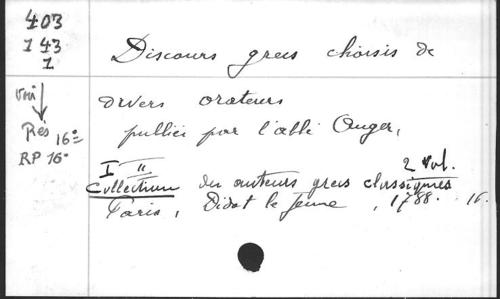 403
143
1
voir
Rés 16°
RP 16°
Discours grecs choisis de
divers orateurs
publiés par l'abbé Auger,
I " 2 vol.
Collection des auteurs grecs classiques
Paris, Didot le Jeune, 1788. 16.